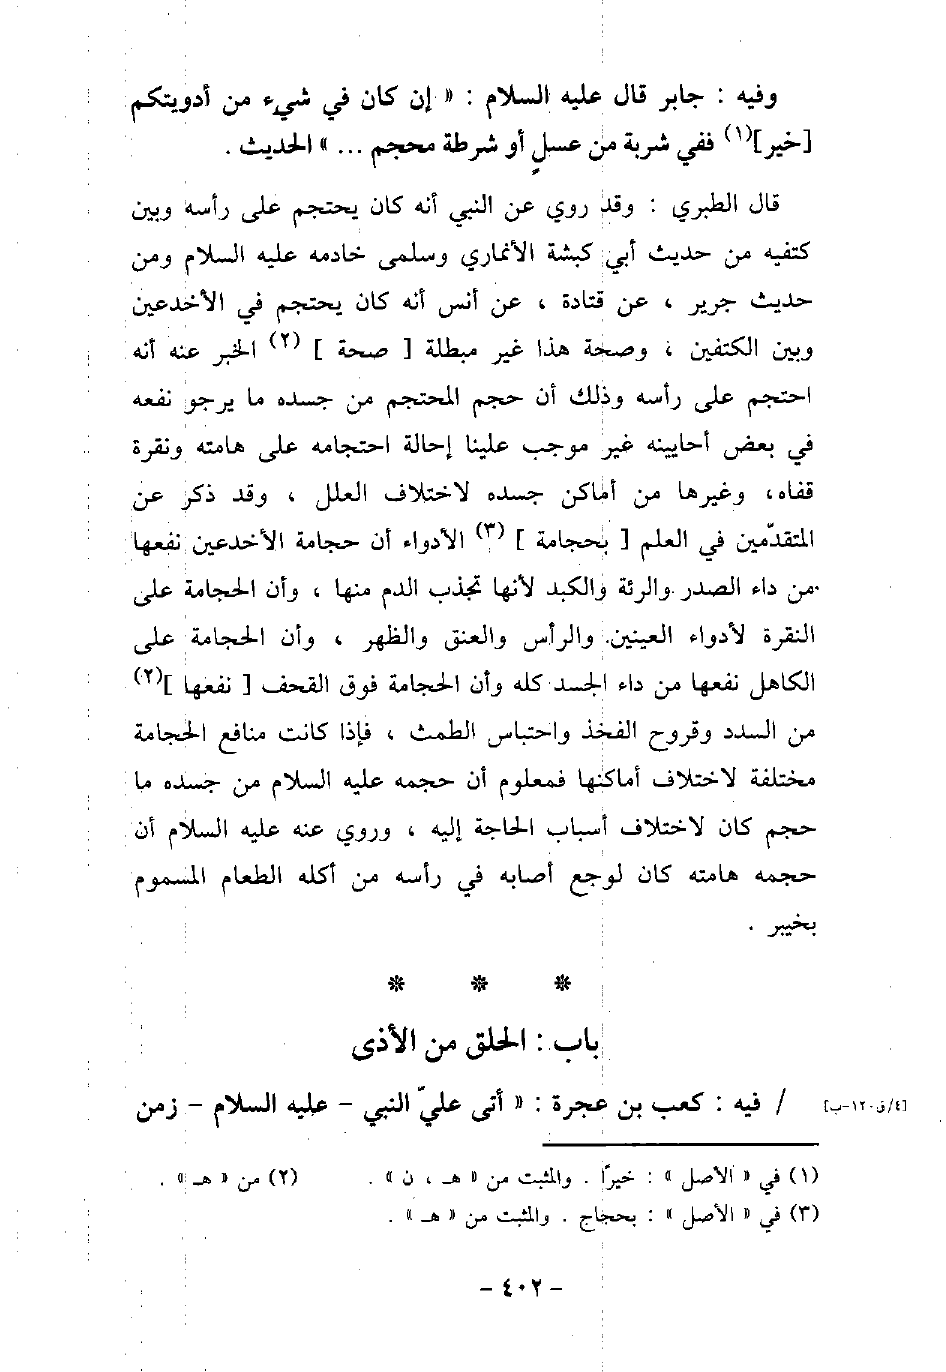 وفيه : جابر قال عليه السلام : « إن كان في شيء من أدويتكم
[خير](١) ففي شربة من عسلٍ أو شرطة محجم ... » الحديث .
قال الطبري : وقد روي عن النبي أنه كان يحتجم على رأسه وبين
كتفيه من حديث أبي كبشة الأنماري وسلمى خادمه عليه السلام ومن
حديث جرير ، عن قتادة ، عن أنس أنه كان يحتجم في الأخدعين
وبين الكتفين ، وصحة هذا غير مبطلة [ صحة ] (٢) الخبر عنه أنه
احتجم على رأسه وذلك أن حجم المحتجم من جسده ما يرجو نفعه
في بعض أحايينه غير موجب علينا إحالة احتجامه على هامته ونقرة
قفاه، وغيرها من أماكن جسده لاختلاف العلل ، وقد ذكر عن
المتقدّمين في العلم [ بحجامة ] (٣) الأدواء أن حجامة الأخدعين نفعها
من داء الصدر والرئة والكبد لأنها تجذب الدم منها ، وأن الحجامة على
النقرة لأدواء العينين والرأس والعنق والظهر ، وأن الحجامة على
الكاهل نفعها من داء الجسد كله وأن الحجامة فوق القحف [ نفعها ](٢)
من السدد وقروح الفخذ واحتباس الطمث ، فإذا كانت منافع الحجامة
مختلفة لاختلاف أماكنها فمعلوم أن حجمه عليه السلام من جسده ما
حجم كان لاختلاف أسباب الحاجة إليه ، وروي عنه عليه السلام أن
حجمه هامته كان لوجع أصابه في رأسه من أكله الطعام المسموم
بخيبر .
* * *
باب : الحلق من الأذى
[٤/ق١٢٠-ب] / فيه : كعب بن عجرة : « أتى عليّ النبي - عليه السلام - زمن
(١) في « الأصل » : خيرًا . والمثبت من « هـ ، ن » . (٢) من « هـ » .
(٣) في « الأصل » : بحجاج . والمثبت من « هـ » .
- ٤٠٢ -